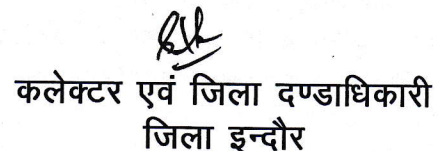 कलेक्टर एवं जिला दण्डाधिकारी
जिला इन्दौर